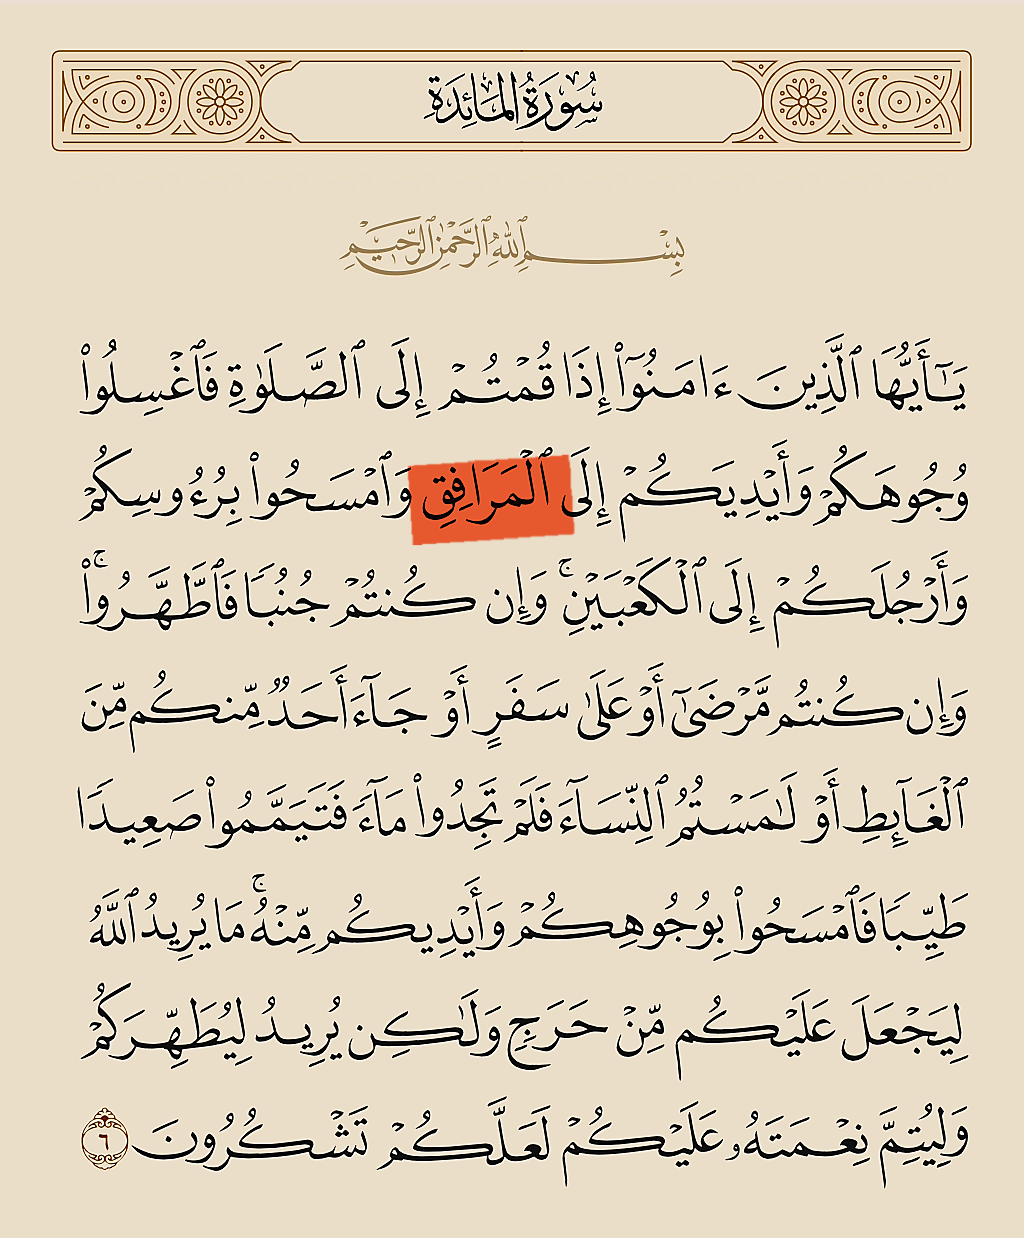 سُورَةُ المَائِدَةِ
بِسْمِ ٱللَّهِ ٱلرَّحْمَٰنِ ٱلرَّحِيمِ
يَـٰٓأَيُّهَا ٱلَّذِينَ ءَامَنُوٓا۟ إِذَا قُمْتُمْ إِلَى ٱلصَّلَوٰةِ فَٱغْسِلُوا۟
وُجُوهَكُمْ وَأَيْدِيَكُمْ إِلَى ٱلْمَرَافِقِ وَٱمْسَحُوا۟ بِرُءُوسِكُمْ
وَأَرْجُلَكُمْ إِلَى ٱلْكَعْبَيْنِ ۚ وَإِن كُنتُمْ جُنُبًا فَٱطَّهَّرُوا۟ ۚ
وَإِن كُنتُم مَّرْضَىٰٓ أَوْ عَلَىٰ سَفَرٍ أَوْ جَآءَ أَحَدٌ مِّنكُم مِّنَ
ٱلْغَآئِطِ أَوْ لَـٰمَسْتُمُ ٱلنِّسَآءَ فَلَمْ تَجِدُوا۟ مَآءً فَتَيَمَّمُوا۟ صَعِيدًا
طَيِّبًا فَٱمْسَحُوا۟ بِوُجُوهِكُمْ وَأَيْدِيكُم مِّنْهُ ۚ مَا يُرِيدُ ٱللَّهُ
لِيَجْعَلَ عَلَيْكُم مِّنْ حَرَجٍ وَلَـٰكِن يُرِيدُ لِيُطَهِّرَكُمْ
وَلِيُتِمَّ نِعْمَتَهُۥ عَلَيْكُمْ لَعَلَّكُمْ تَشْكُرُونَ ٦